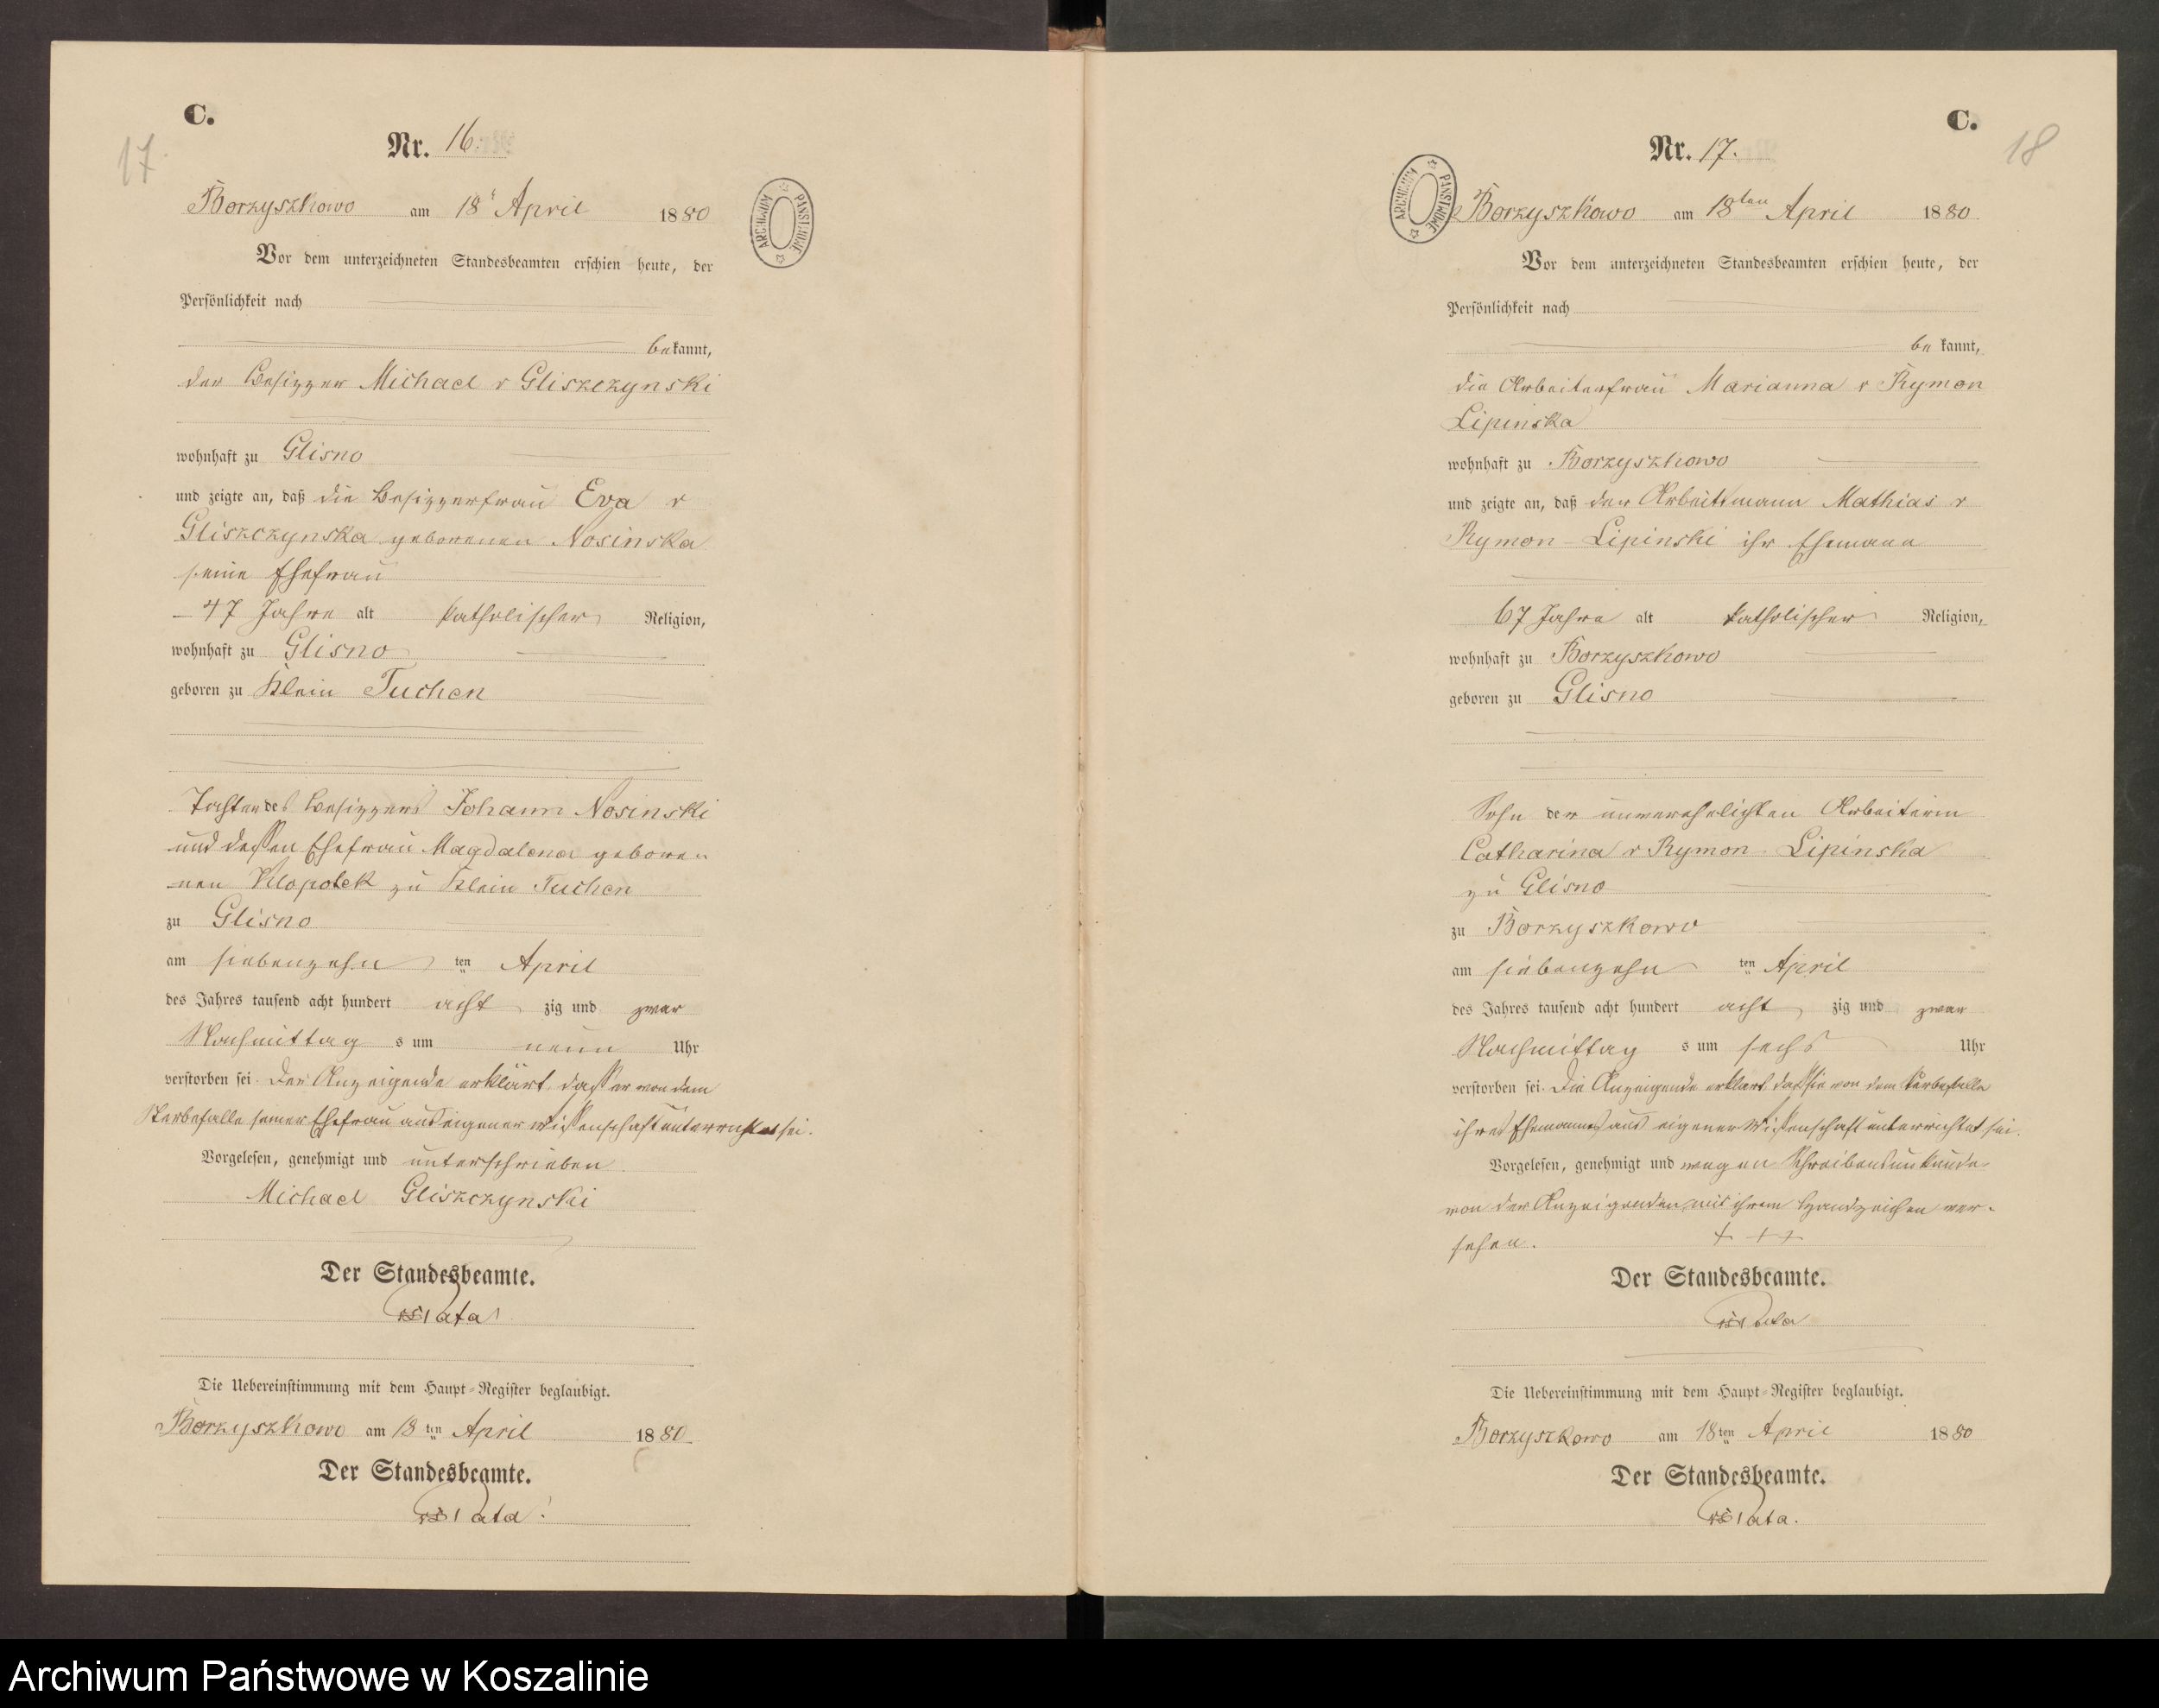 C.
17
Nr. 16.
Borzyszkowo am 18t April 1880
Vor dem unterzeichneten Standesbeamten erschien heute, der
Persönlichkeit nach
bekannt,
der Besizzer Michael v Gliszczynski
wohnhaft zu Glisno
und zeigte an, daß die Besizzerfrau Eva v
Gliszczynska geborenen Nosinska
seine Ehefrau
47 Jahre alt katholischer Religion,
wohnhaft zu Glisno
geboren zu Klein Tuchen
Tochter des Besizzers Johann Nosinski
und dessen Ehefrau Magdalena gebore-
nen Klopotek zu Klein Tuchen
zu Glisno
am siebenzehn ten April
des Jahres tausend acht hundert acht zig und zwar
Nachmittag s um neun Uhr
verstorben sei. Der Anzeigende erklärt, dass er von dem
Sterbefalle seiner Ehefrau aus eigener Wissenschaft unterrichtet sei.
Vorgelesen, genehmigt und unterschrieben
Michael Gliszczynski
Der Standesbeamte.
Pata
Die Uebereinstimmung mit dem Haupt-Register beglaubigt.
Borzyszkowo am 18 ten April 1880
Der Standesbeamte.
Pata
ARCHIWUM PAŃSTWOWE
C.
18
Nr. 17.
ARCHIWUM PAŃSTWOWE
Borzyszkowo am 18ten April 1880
Vor dem unterzeichneten Standesbeamten erschien heute, der
Persönlichkeit nach
bekannt,
die Arbeiterfrau Marianna v Rymon
Lipinska
wohnhaft zu Borzyszkowo
und zeigte an, daß der Arbeitsmann Mathias v
Rymon-Lipinski ihr Ehemann
67 Jahre alt katholischer Religion,
wohnhaft zu Borzyszkowo
geboren zu Glisno
Sohn der unverehelichten Arbeiterin
Catharina v Rymon Lipinska
zu Glisno
zu Borzyszkowo
am siebenzehn ten April
des Jahres tausend acht hundert acht zig und zwar
Nachmittag s um sechs Uhr
verstorben sei. Die Anzeigende erklärt, daß sie von dem Sterbefalle
ihres Ehemannes aus eigener Wissenschaft unterrichtet sei.
Vorgelesen, genehmigt und wegen Schreibensunkunde
von der Anzeigenden mit ihrem Handzeichen ver-
sehen. + + +
Der Standesbeamte.
Pata
Die Uebereinstimmung mit dem Haupt-Register beglaubigt.
Borzyszkowo am 18 ten April 1880
Der Standesbeamte.
Pata.
Archiwum Państwowe w Koszalinie